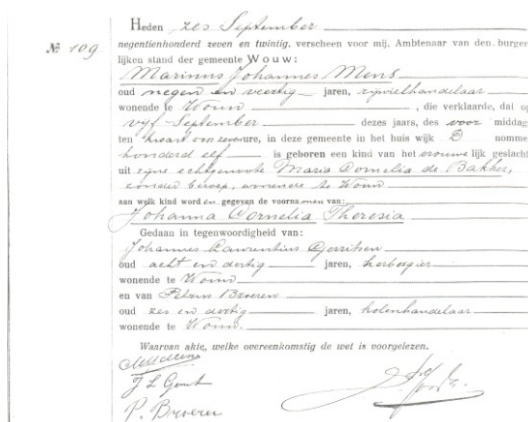 Heden zes September
№ 109.
negentienhonderd zeven en twintig, verscheen voor mij, Ambtenaar van den burger
lijken stand der gemeente Wouw:
Marinus Johannes Mens
oud negen en veertig jaren, rijwielhandelaar
wonende te Wouw, die verklaarde, dat op
vijf September dezes jaars, des voor middag
ten kwart voor zes ure, in deze gemeente in het huis wijk D nomme
honderd elf is geboren een kind van het vrouwelijk geslacht
uit zijne echtgenoote Maria Cornelia de Bakker,
zonder beroep, wonende te Wouw
aan welk kind word en gegeven de voornamen van:
Johanna Cornelia Theresia
Gedaan in tegenwoordigheid van:
Johannes Laurentius Gerritsen
oud acht en dertig jaren, herbergier
wonende te Wouw
en van Petrus Broeren
oud zes en dertig jaren, kolenhandelaar
wonende te Wouw.
Waarvan akte, welke overeenkomstig de wet is voorgelezen.
P. Broeren